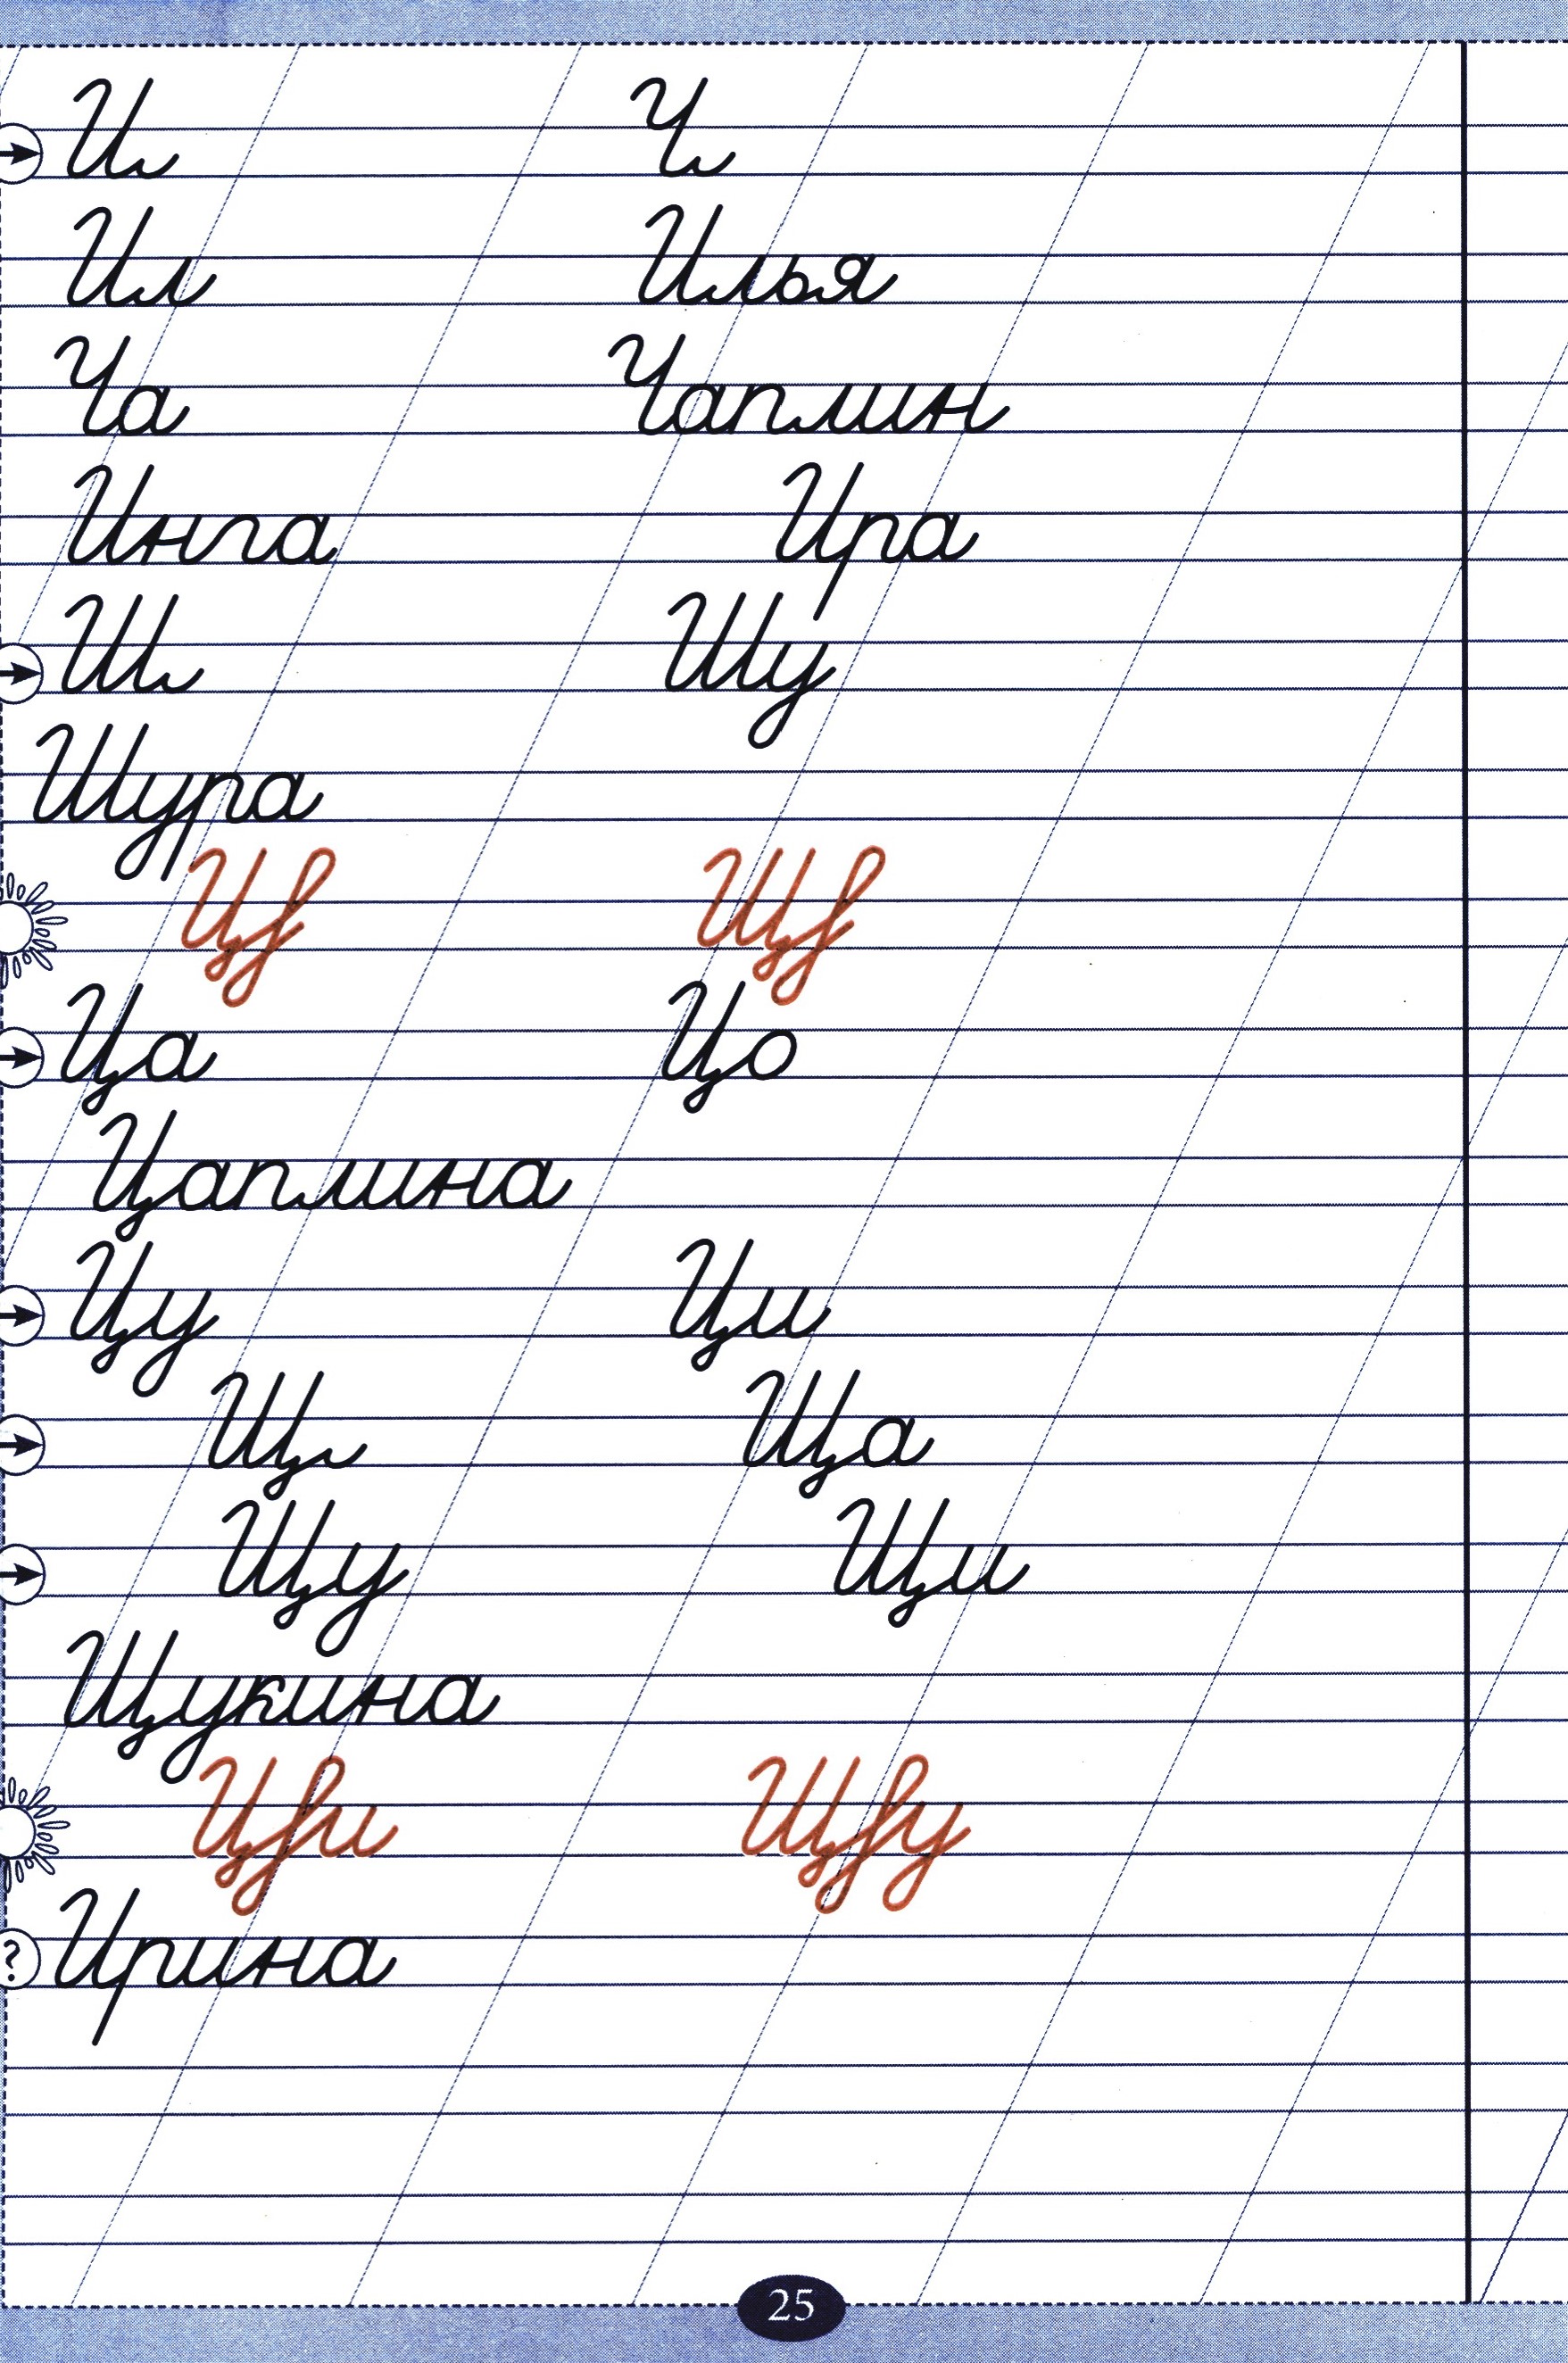 И Ч
Ил Илья
Ча Чаплин
Инга Ира
Ш Шу
Шура
Ца Цо
Цаплина
Цу Ци
Щ Ща
Щу Щи
Щукина
?
Ирина
25